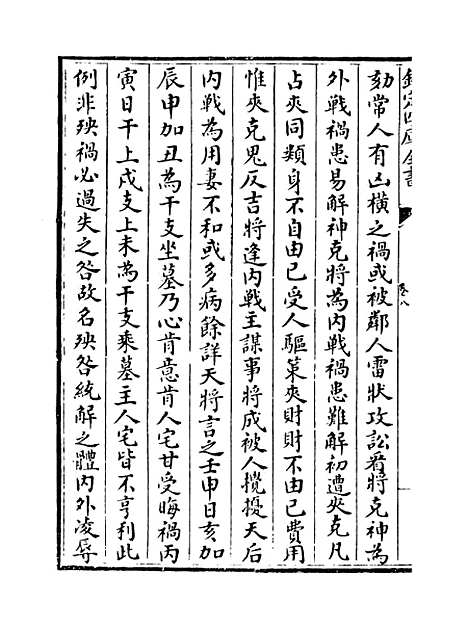 欽定四庫全書
卷八
劾常人有凶橫之禍或被鄰人雷狀攻訟看將克神為
外戰禍患易解神克將為内戰禍患難解初遭夾克凡
占夾同類身不自由已受人驅策夾財財不由已費用
惟夾克鬼反吉將逢内戰主謀事將成被人攪擾天后
内戰為用妻不和或多病餘詳天將言之壬申日亥加
辰申加丑為干支坐墓乃心肯意肯人宅甘受晦禍丙
寅日干上戌支上未為干支乘墓主人宅皆不亨利此
例非殃禍必過失之咎故名殃咎統解之體内外凌辱